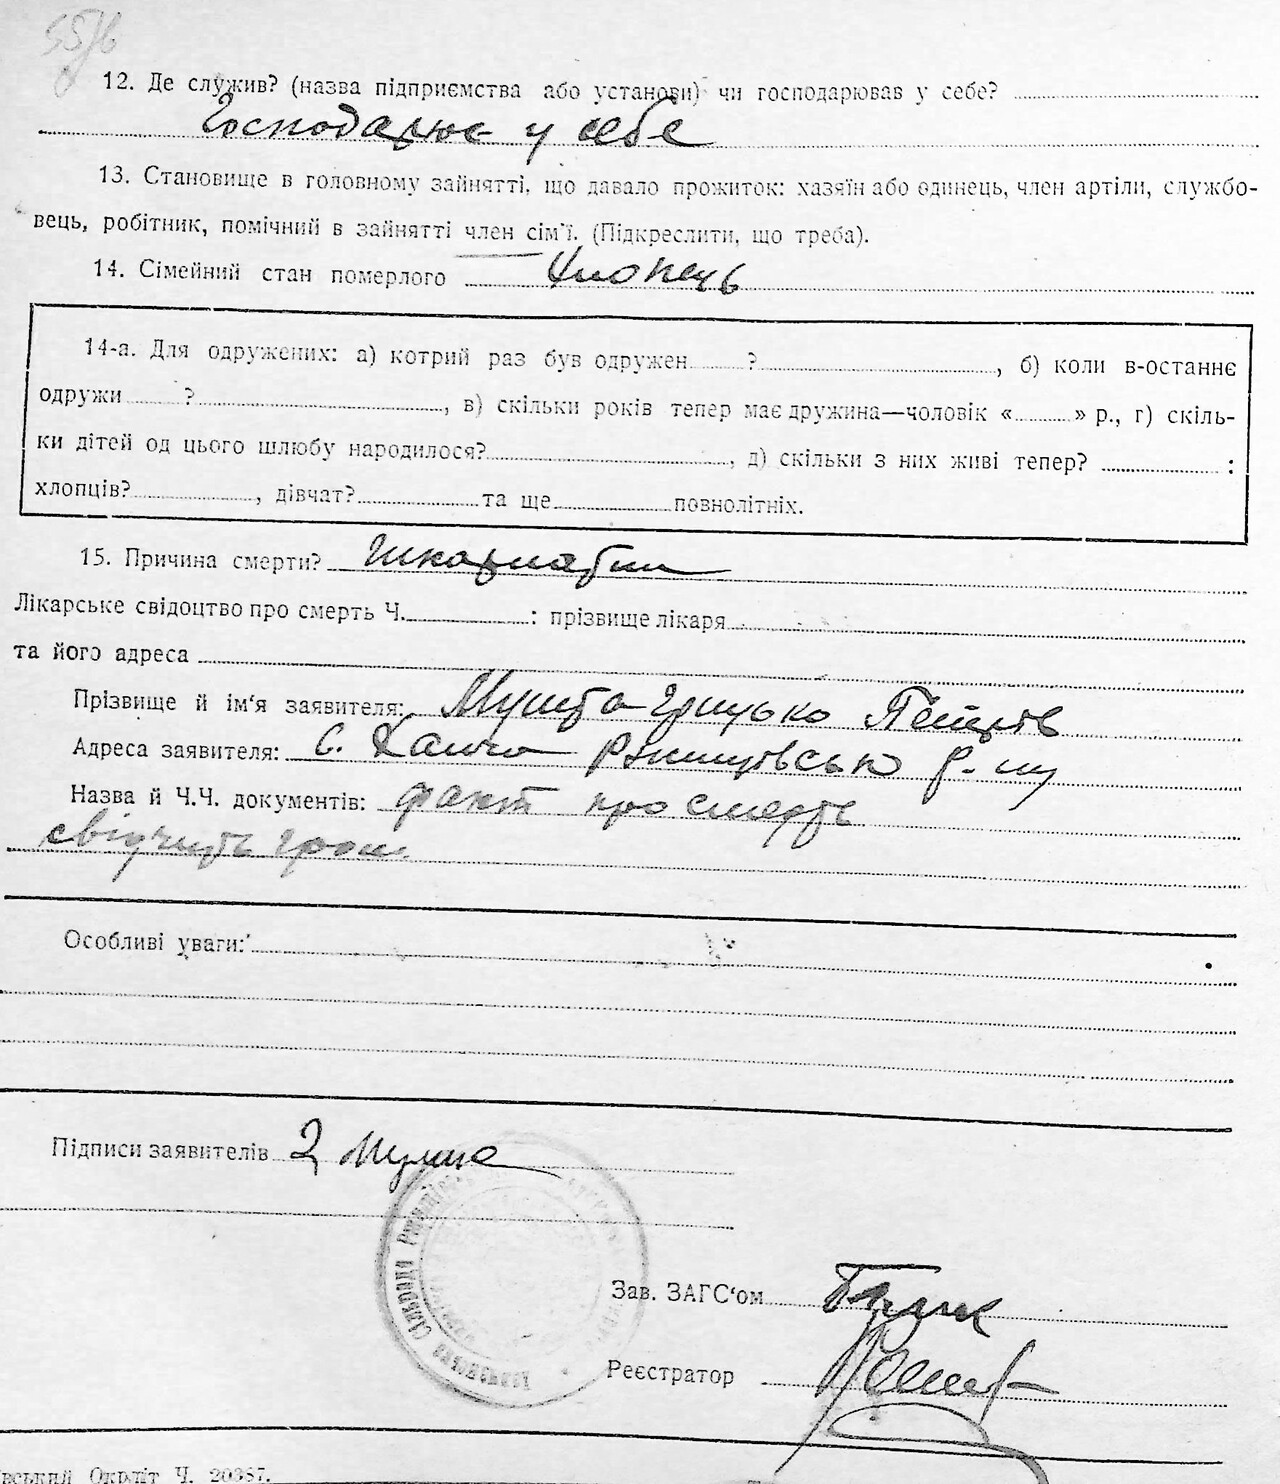 55/6
12. Де служив? (назва підприємства або установи) чи господарював у себе?
Господарює у себе
13. Становище в головному зайнятті, що давало прожиток: хазяїн або одинець, член артіли, службо-
вець, робітник, помічний в зайнятті член сім'ї. (Підкреслити, що треба).
14. Сімейний стан померлого Хлопець
14-а. Для одружених: а) котрий раз був одружен ? , б) коли в-останнє
одружи ? , в) скільки років тепер має дружина—чоловік « » р., г) скіль-
ки дітей од цього шлюбу народилося? , д) скільки з них живі тепер? :
хлопців? , дівчат? та ще повнолітніх.
15. Причина смерти? Шкарлатин
Лікарське свідоцтво про смерть Ч. : прізвище лікаря
та його адреса
Прізвище й ім'я заявителя: Грицько Петрів
Адреса заявителя: с. Ржищівсько р-ну
Назва й Ч.Ч. документів: факт про смерть
свідчить гром.
Особливі уваги:
Підписи заявителів
Зав. ЗАГС'ом
Реєстратор
вський Окрліт Ч. 20367.